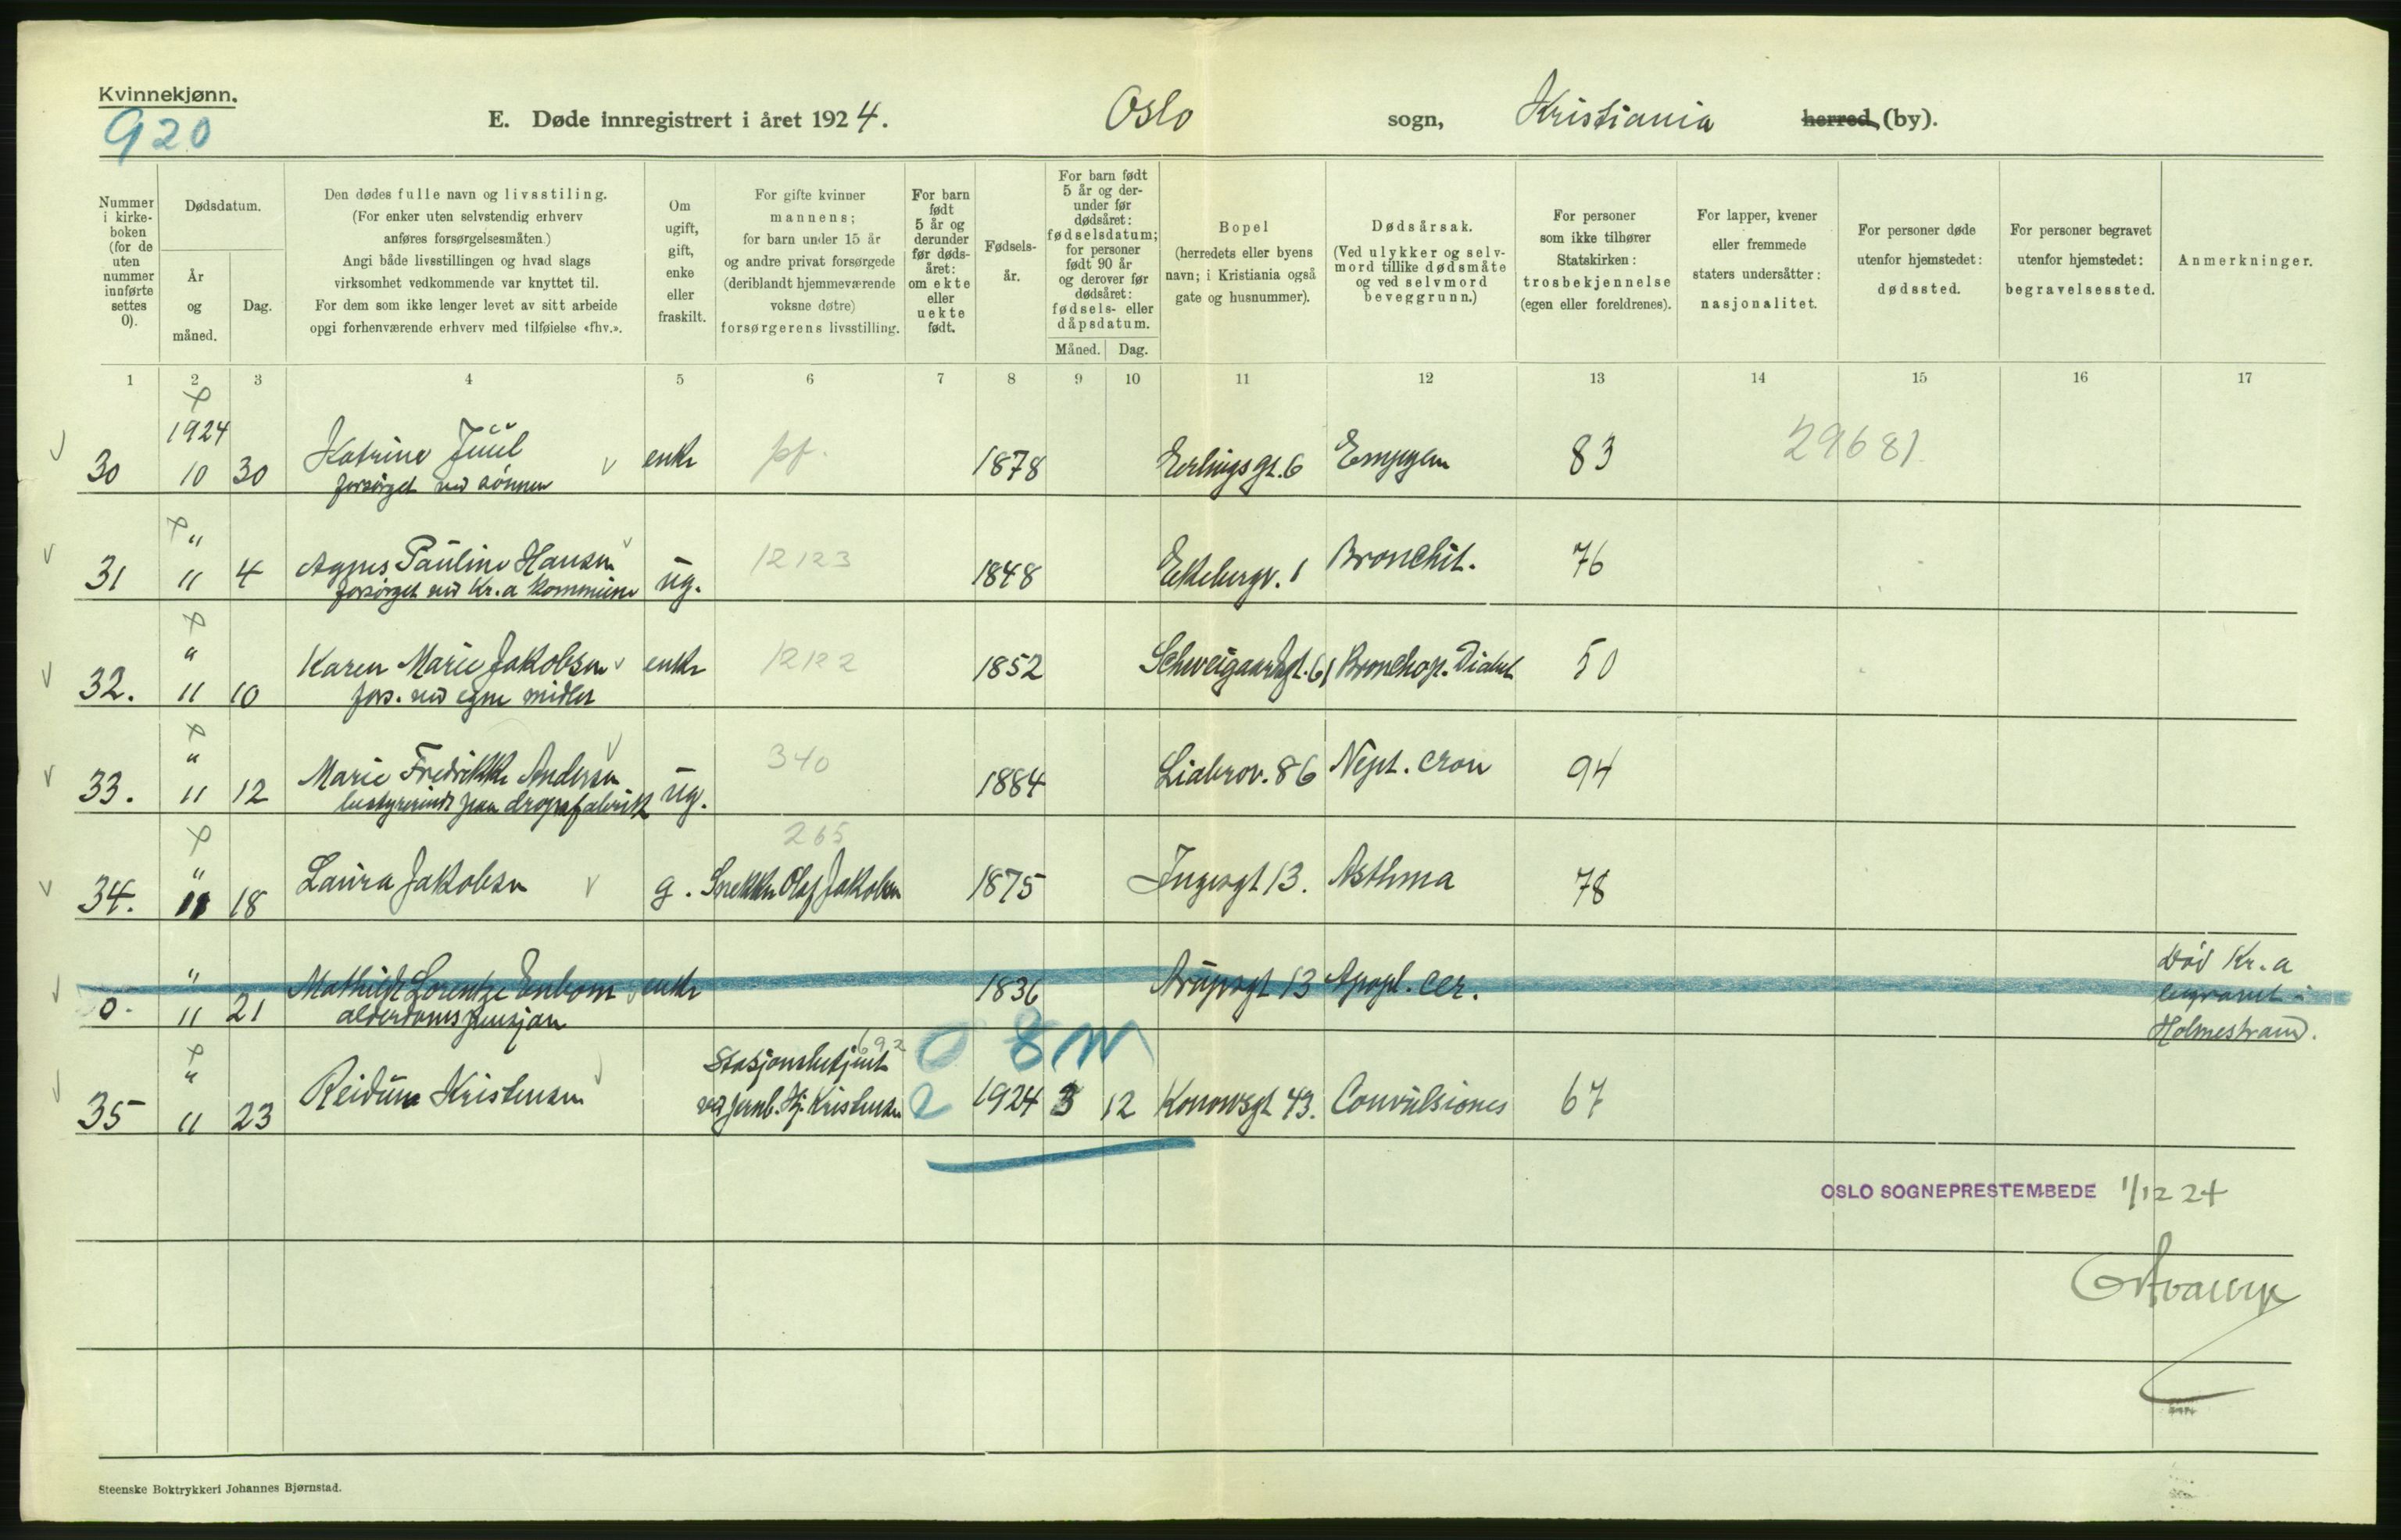 Kvinnekjønn.
920
E. Døde innregistrert i året 1924. Oslo sogn, Kristiania herred, (by).
Nummer i kirke-boken (for de uten nummer innførte settes 0).
Dødsdatum.
År og måned.
Dag.
Den dødes fulle navn og livsstiling.
(For enker uten selvstendig erhverv
anføres forsørgelsesmåten.)
Angi både livsstillingen og hvad slags
virksomhet vedkommende var knyttet til.
For dem som ikke lenger levet av sitt arbeide
opgi forhenværende erhverv med tilføielse «fhv.».
Om
ugift,
gift,
enke
eller
fraskilt.
For gifte kvinner
mannens;
for barn under 15 år
og andre privat forsørgede
(deriblandt hjemmeværende
voksne døtre)
forsørgerens livsstilling.
For barn
født
5 år og
derunder
før døds-
året:
om ekte
eller
uekte
født.
Fødsels-
år.
For barn født
5 år og der-
under før
dødsåret:
fødselsdatum;
for personer
født 90 år
og derover før
dødsåret:
fødsels- eller
dåpsdatum.
Måned. Dag.
Bopel
(herredets eller byens
navn; i Kristiania også
gate og husnummer).
Dødsårsak.
(Ved ulykker og selv-
mord tillike dødsmåte
og ved selvmord
beveggrunn.)
For personer
som ikke tilhører
Statskirken:
trosbekjennelse
(egen eller foreldrenes).
For lapper, kvener
eller fremmede
staters undersåtter:
nasjonalitet.
For personer døde
utenfor hjemstedet:
dødssted.
For personer begravet
utenfor hjemstedet:
begravelsessted.
Anmerkninger.
1 2 3 4 5 6 7 8 9 10 11 12 13 14 15 16 17
1924
30 10 30 Katrine Juul enke pf. 1878 Erlingsgt. 6 Empyem 83 29681
forsørget ved sønnen
"
31 11 4 Agnes Pauline Hansen ug. 12123 1848 Ekebergv. 1 Bronchit. 76
forsørget ved Kr.a kommune
"
32. 11 10 Karen Marie Jakobsen enke 12122 1852 Schweigaardsgt. 61 Bronchop. Diabet 50
fors. ved egne midler
"
33. 11 12 Marie Fredrikke Andersen ug. 340 1884 Liabrov. 86 Neph. cron 94
bestyrerinde paa dropsfabrik
265
"
34. 11 18 Laura Jakobsen g. Snekker Olaf Jakobsen 1875 Ingesgt 13. Asthma 78
"
0. 11 21 Mathilde Lorentze Enbom enke 1836 Arupsgt 13 Apopl. cer. Død Kr.a
alderdomspensjon begravet i
Holmestrand.
692
0 8 m
"
Stasjonsbetjent
35 11 23 Reidun Kristensen ved jernb. Hj. Kristensen 2 1924 3 12 Konowsgt 43. Convulsiones 67
OSLO SOGNEPRESTEMBEDE 1/12 24
Steenske Boktrykkeri Johannes Bjørnstad.